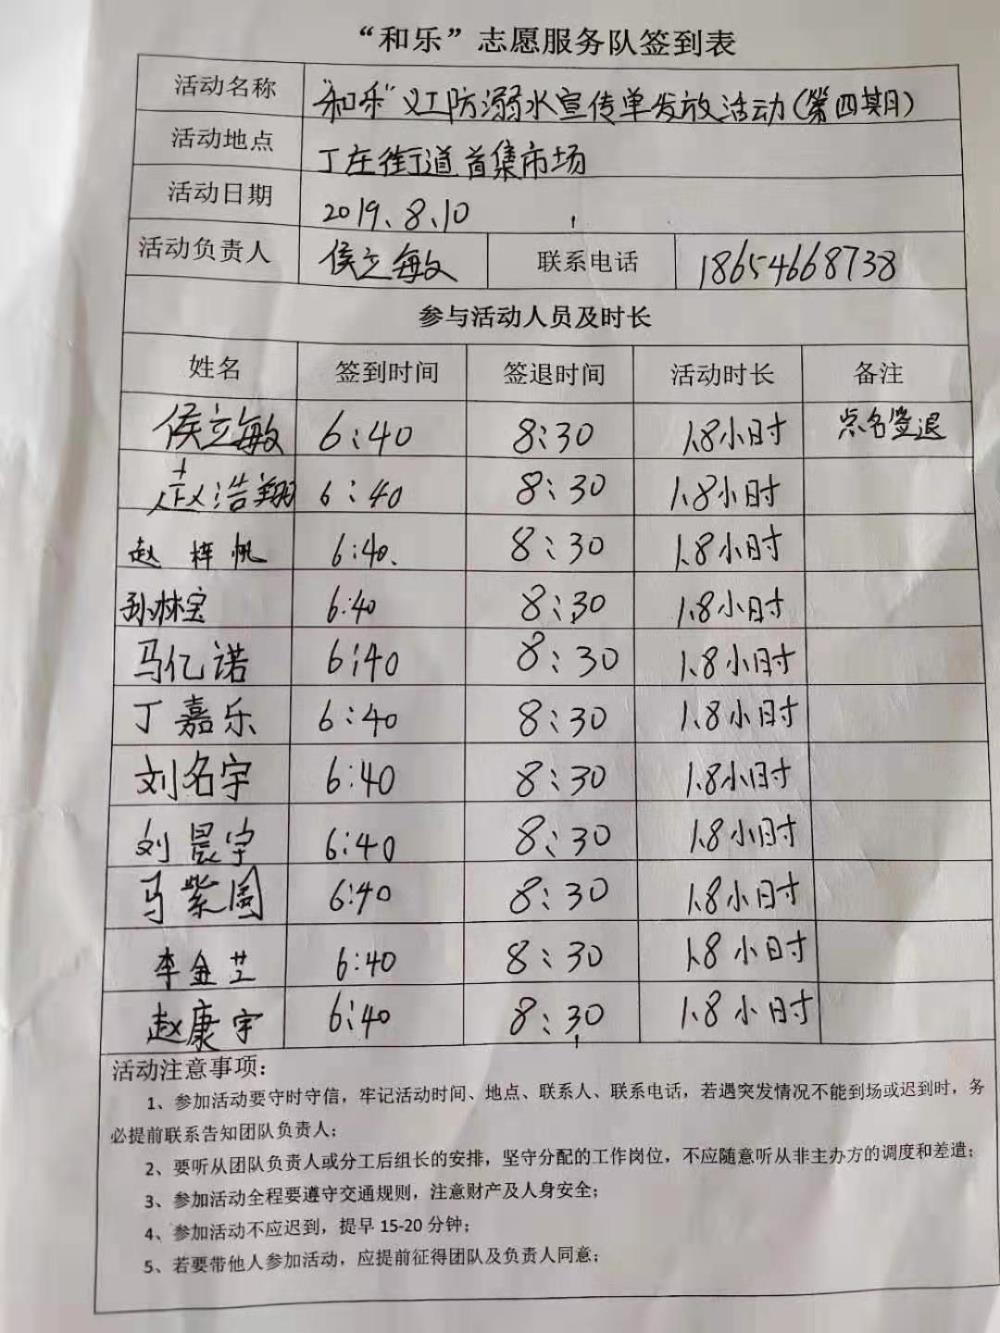 “和乐”志愿服务队签到表
活动名称 “和乐”义工防溺水宣传单发放活动(第四期)
活动地点 丁庄街道首集市场
活动日期 2019.8.10
活动负责人 侯立敏 联系电话 18654668738
参与活动人员及时长
姓名 签到时间 签退时间 活动时长 备注
侯立敏 6:40 8:30 1.8小时 点名签退
赵浩翔 6:40 8:30 1.8小时
赵梓帆 6:40. 8:30 1.8小时
孙林宝 6:40 8:30 1.8小时
马亿诺 6:40 8:30 1.8小时
丁嘉乐 6:40 8:30 1.8小时
刘名宇 6:40 8:30 1.8小时
刘晨宇 6:40 8:30 1.8小时
马紫 6:40 8:30 1.8小时
李金芝 6:40 8:30 1.8小时
赵康宇 6:40 8:30 1.8小时
活动注意事项:
1、参加活动要守时守信，牢记活动时间、地点、联系人、联系电话，若遇突发情况不能到场或迟到时，务
必提前联系告知团队负责人；
2、要听从团队负责人或分工后组长的安排，坚守分配的工作岗位，不应随意听从非主办方的调度和差遣；
3、参加活动全程要遵守交通规则，注意财产及人身安全；
4、参加活动不应迟到，提早 15-20 分钟；
5、若要带他人参加活动，应提前征得团队及负责人同意；